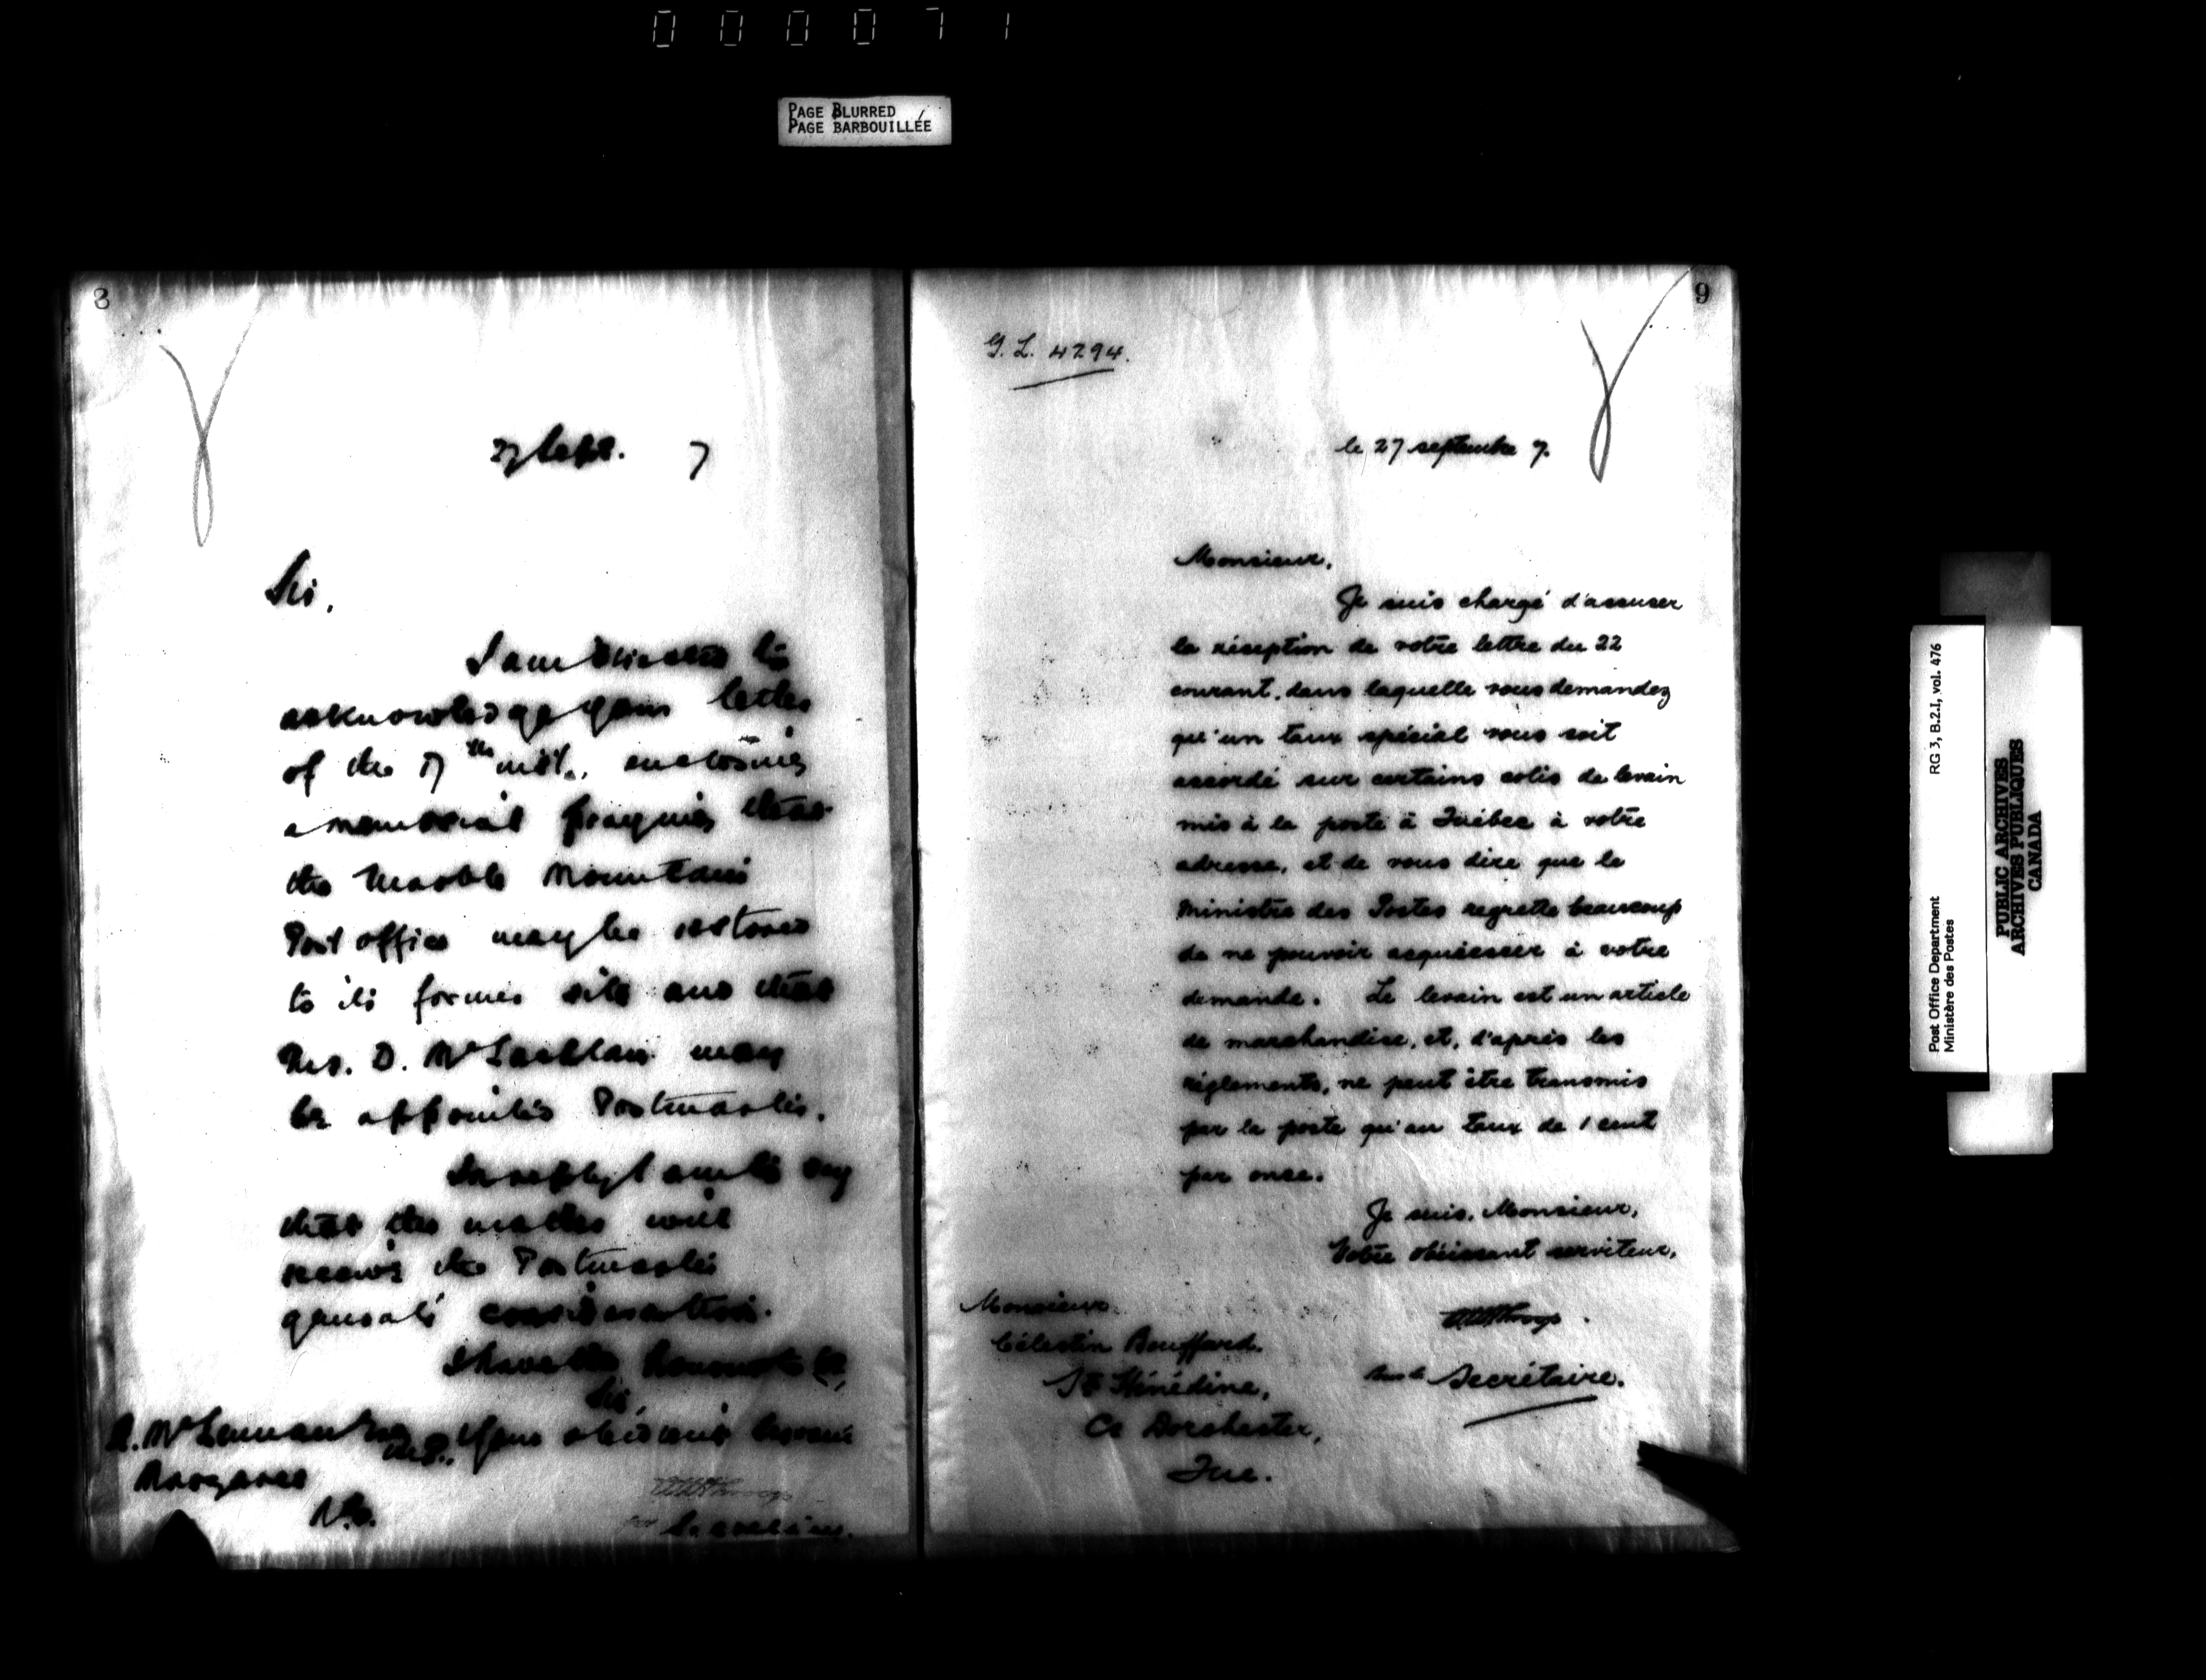 000071
PAGE BLURRED
PAGE BARBOUILLÉE
8
27 Sept. 7
Sir,
I am directed to
acknowledge your letter
of the 17th inst., enclosing
a memorial praying that
the Marble Mountain
Post office may be restored
to its former site and that
D. McLachlan may
be appointed Postmaster.
In reply I am to say
that the matter will
receive the Postmaster
General's consideration.
I have the honour to be,
Sir,
Your obedient servant
A. McLennan Esq.
M.P.,
Margaree
N.S.
Secretary.
9
G. L. 4294.
le 27 septembre 7.
Monsieur,
Je suis chargé d'accuser
la réception de votre lettre du 22
courant, dans laquelle vous demandez
qu'un taux spécial vous soit
accordé sur certains colis de levain
mis à la poste à Québec à votre
adresse, et de vous dire que le
Ministre des Postes regrette beaucoup
de ne pouvoir acquiescer à votre
demande. Le levain est un article
de marchandise, et, d'après les
règlements, ne peut être transmis
par la poste qu'au taux de 1 cent
par once.
Je suis, Monsieur,
Votre obéissant serviteur,
Monsieur
Célestin Bouffard.
Ste Hénédine,
Co Dorchester,
Que.
Secrétaire.
Post Office Department
Ministère des Postes
RG 3, B.2.I, vol. 476
PUBLIC ARCHIVES
ARCHIVES PUBLIQUES
CANADA